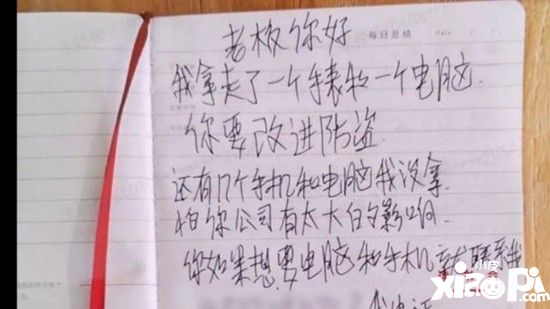 老板你好
每日总结
我拿走了一个手表和一个电脑.
你要改进防盗
还有几个手机和电脑我没拿
怕你公司有太大的影响.
你如果想要电脑和手机就联系我
小皮
xiaopi.com